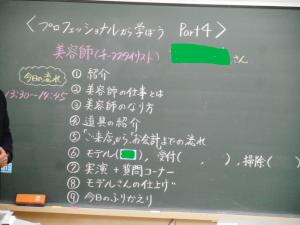 〈プロフェッショナルから学ぼう Part4〉
美容師(トップスタイリスト) さん
今日の流れ
13:30〜14:45
① 紹介
② 美容師の仕事とは
③ 美容師のなり方
④ 道具の紹介
⑤ "ご来店"から"お会計"までの流れ
⑥ モデル( )、受付( , )、掃除( )
⑦ 実演+質問コーナー
⑧ モデルさんの仕上げ
⑨ 今日のふりかえり